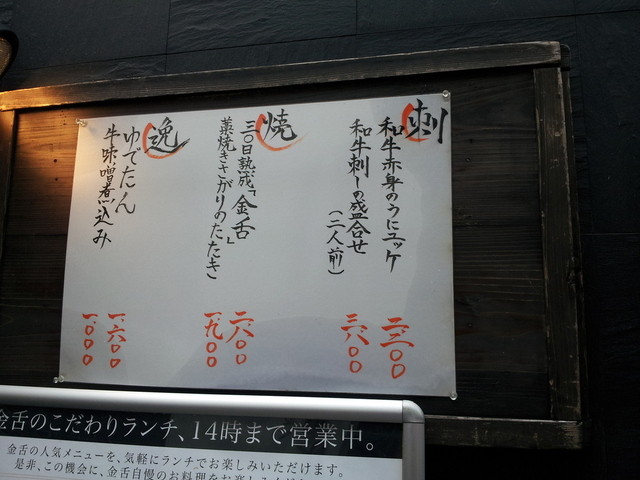 刺
和牛赤身のうにユッケ
二、三〇〇
和牛刺しの盛合せ
(二人前)
三、六〇〇
焼
三〇日熟成「金舌」
二、六〇〇
藁焼きさがりのたたき
一、九〇〇
逸
ゆでたん
一、六〇〇
牛味噌煮込み
一、〇〇〇
金舌のこだわりランチ、14時まで営業中。
金舌の人気メニューを、気軽にランチでお楽しみいただけます。
是非、この機会に、金舌自慢のお料理をお楽しみ